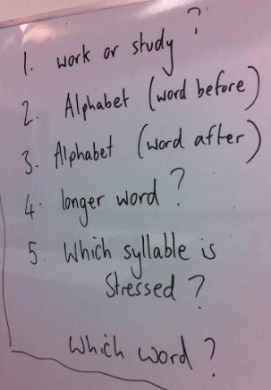 1. work or study ?
2. Alphabet (word before)
3. Alphabet (word after)
4. longer word ?
5. Which syllable is
Stressed ?
Which word ?